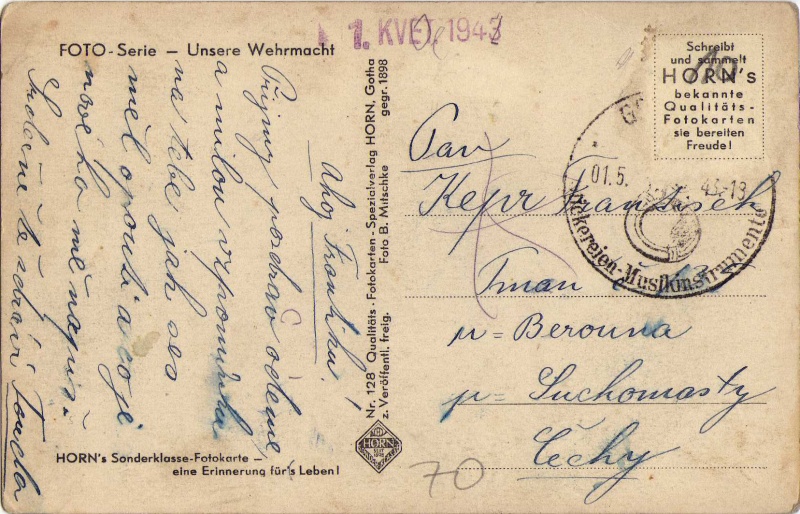 1. KVĚT. 1943
FOTO-Serie – Unsere Wehrmacht
Ahoj Frantíku!
Přijmy pozdrav odemne,
a milou vzpomínku
na tebe jak ses
měl o pouti a co je
nového mě napiš.
Srdečně tě zdraví Tonda
HORN's Sonderklasse-Fotokarte –
eine Erinnerung für's Leben!
Nr. 128 Qualitäts-Fotokarten-Spezialverlag HORN, Gotha
z. Veröffentl. freig. Foto B. Mitschke gegr. 1898
HORN
Schreibt
und sammelt
HORN's
bekannte
Qualitäts-
Fotokarten
sie bereiten
Freude!
01.5. 43-18
Stickereien-Musikinstrumente
Pan
Kepr František
Tman
u Berouna
p. Suchomasty
Čechy
70